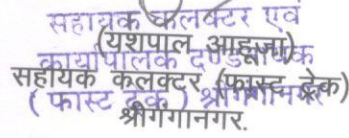 सहायक कलक्टर एवं
(यशपाल आहूजा)
कार्यापालक दण्डनायक
सहायक कलक्टर (फास्ट ट्रेक)
( फास्ट ट्रेक ) श्रीगंगानगर
श्रीगंगानगर.